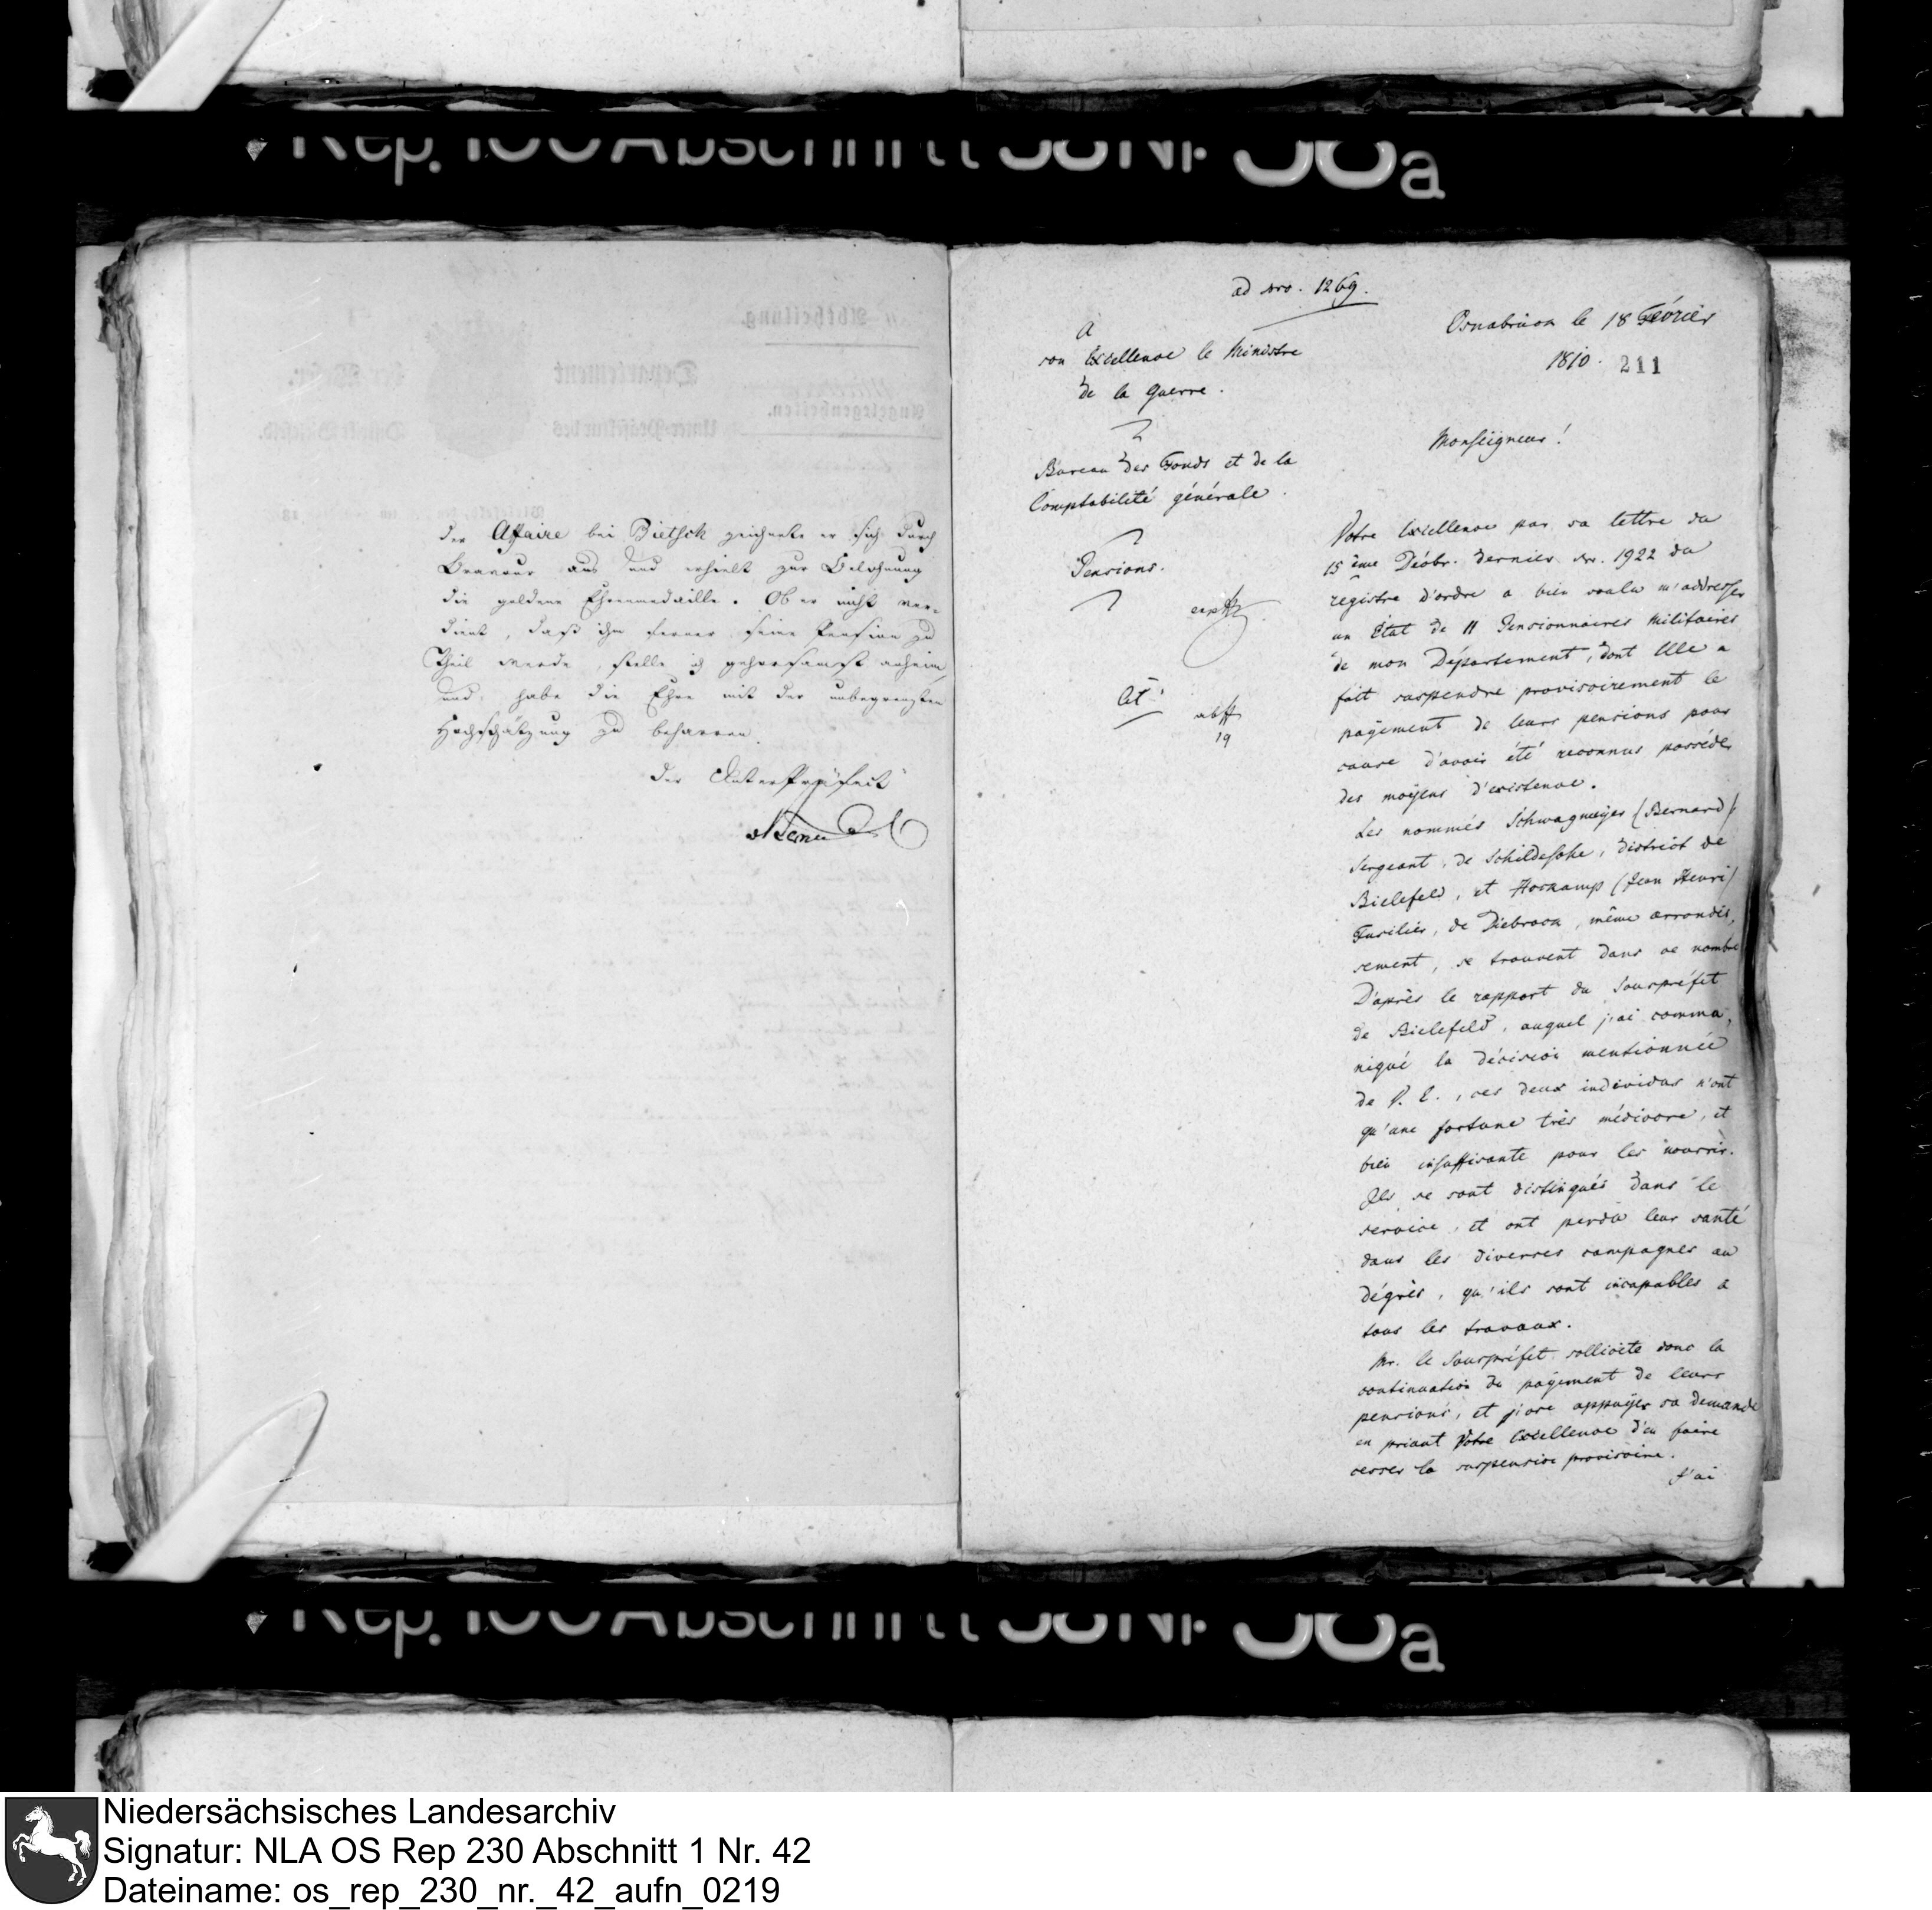 Rep. 100 Abschnitt 58 Nr 38a
der Affaire bei Bietsch zeichnete er sich durch
Bravour aus und erhielt zur Belohnung
die goldene Ehrenmedaille. Ob er nicht ver-
dient, daß ihm ferner seine Pension zu
Theil werde, stelle ich gehorsamst anheim,
und habe die Ehre mit der unbegrenzten
Hochschätzung zu beharren.
Der UnterPräfect
ad nro. 1269.
Osnabruck le 18 Février
1810. 211
A
son Excellence le Ministre
de la Guerre.
Bureau des Fonds et de la
Comptabilité générale.
Pensions.
cit!
19
Monseigneur!
Votre Excellence par sa lettre du
15ème Décbr. dernier nr. 1922 du
régistre d'ordre a bien voulu m'addresser
un État de 11 Pensionnaires militaires
de mon Département, dont Elle a
fait suspendre provisoirement le
payement de leurs pensions pour
cause d'avoir été reconnus posséder
des moÿens d'existence.
Les nommés Schwagmeyer (Bernard)
Sergeant, de Schildesche, district de
Bielefeld, et Horkamp (Jean Henri)
Fusilier, de Diebrock, même arrondis,
sement, se trouvent dans ce nombre
D'après le rapport du Souspréfet
de Bielefeld, auquel j'ai commu,
niqué la décision mentionnée
de V. E., ces deux individus n'ont
qu'une fortune très médiocre, et
bien insuffisante pour les nourrir.
Ils se sont distingués dans le
service, et ont perdu leur santé
dans les diverses campagnes au
dégrés, qu'ils sont incapables a
tous les travaux.
Mr. le Souspréfet sollicite donc la
continuation du payement de leurs
pensions, et j'ose appuÿer sa demande
en priant Votre Excellence d'en faire
cesser la suspension provisoire.
J'ai
Rep. 100 Abschnitt 58 Nr 38a
Niedersächsisches Landesarchiv
Signatur: NLA OS Rep 230 Abschnitt 1 Nr. 42
Dateiname: os_rep_230_nr._42_aufn_0219